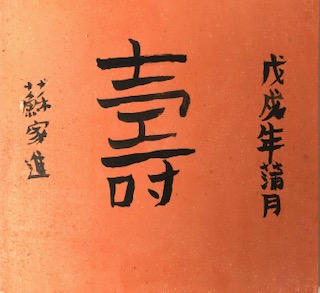 戊戌年蒲月
壽
蘇家進